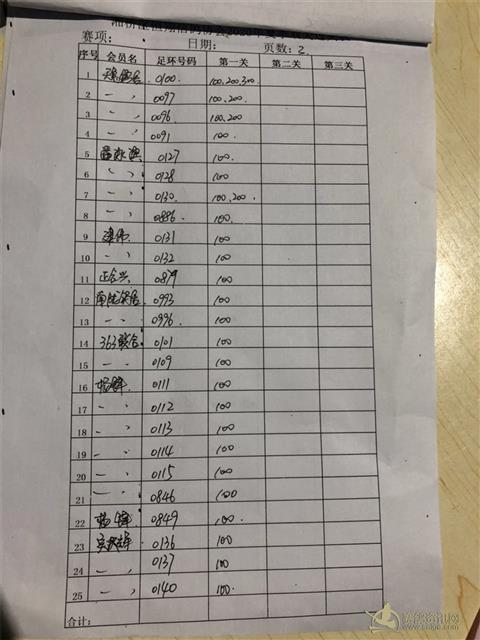 赛项： 日期： 页数：2
序号 会员名 足环号码 第一关 第二关 第三关
1 0100 100.200.300
2 〃 0097 100.200
3 〃 0096 100.200
4 〃 0091 100
5 0127 100
6 〃 0128 100
7 〃 0130 100.200
8 〃 0886 100
9 0131 100
10 〃 0132 100
11 正合兴 0879 100
12 0993 100
13 〃 0996 100
14 363联合 0101 100
15 〃 0109 100
16 杨锋 0111 100
17 〃 0112 100
18 〃 0113 100
19 〃 0114 100
20 〃 0115 100
21 〃 0846 100
22 杨锋 0849 100
23 0136 100
24 〃 0137 100
25 〃 0140 100
合计：